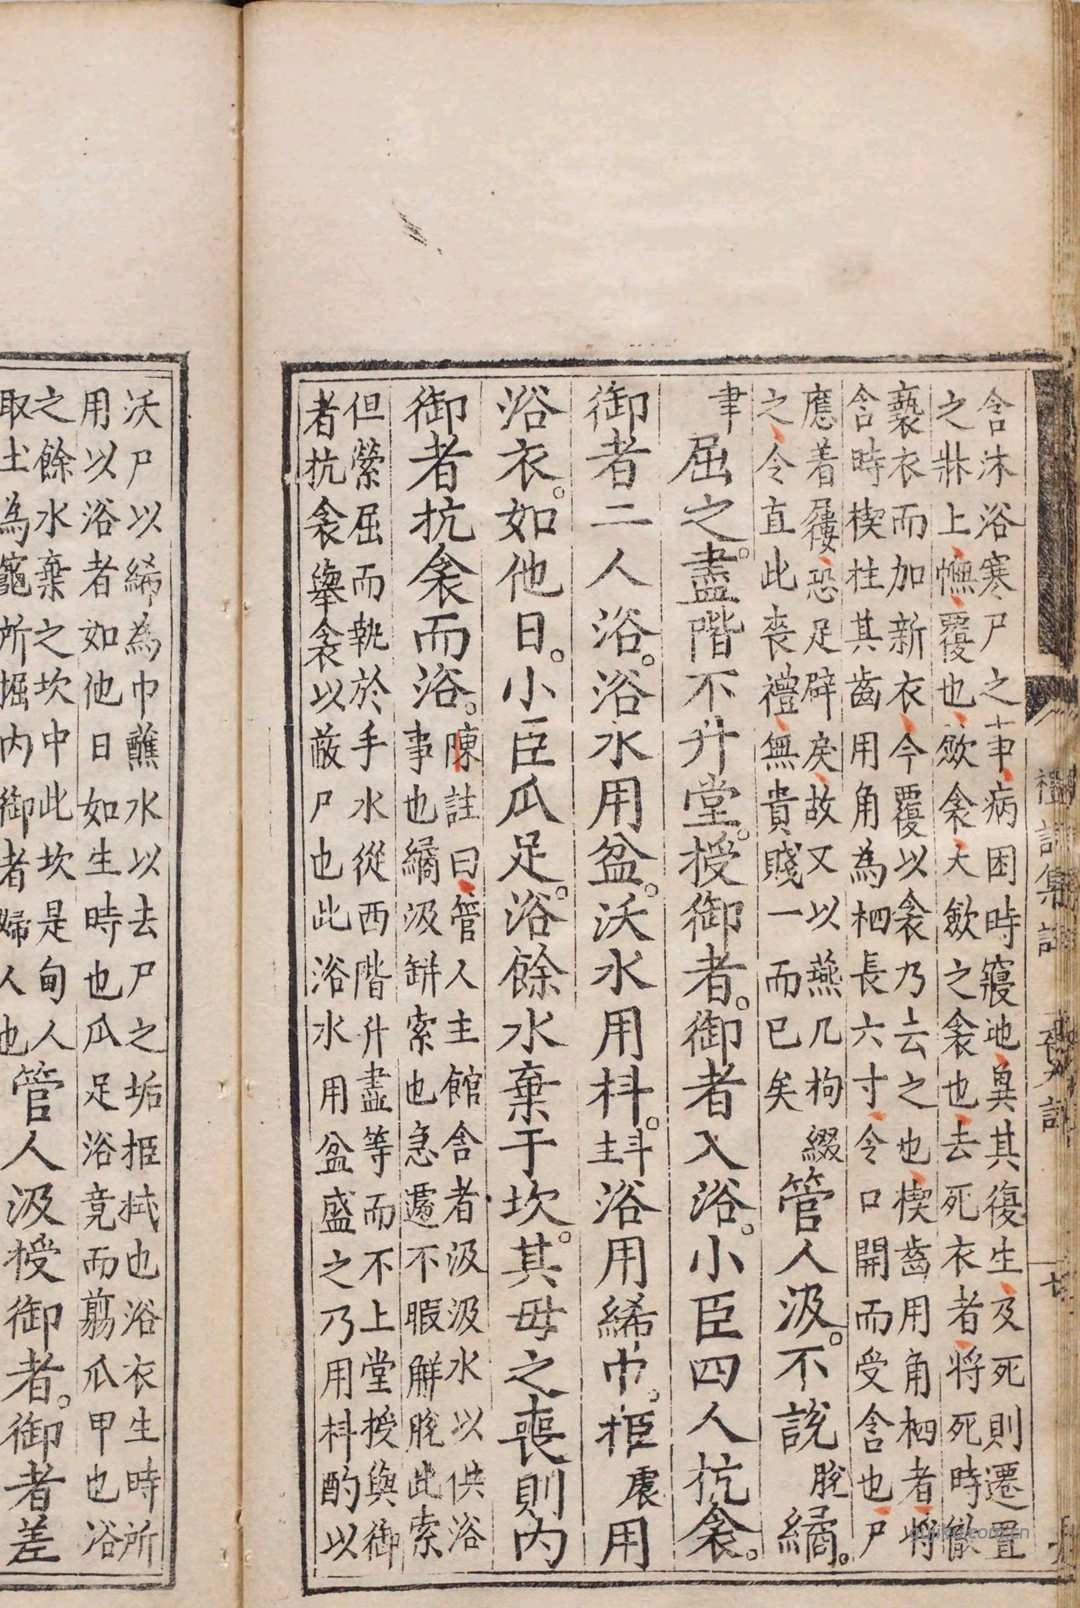 含沐浴寒尸之事病困時寢地兾其復生及死則遷置
之牀上幠覆也歛衾大歛之衾也去死衣者將死時徹
褻衣而加新衣今覆以衾乃去之也楔齒用角柶者將
含時楔柱其齒用角為柶長六寸令口開而受含也尸
應着屨恐足辟戾故又以燕几拘綴
之令直此喪禮無貴賤一而已矣
管人汲不說脫繘
聿屈之盡階不升堂授御者御者入浴小臣四人抗衾
御者二人浴浴水用盆沃水用枓主斗浴用絺巾挋震用
浴衣如他日小臣瓜足浴餘水棄于坎其母之喪則內
御者抗衾而浴
陳註曰管人主館舍者汲汲水以供浴
事也繘汲缾索也急遽不暇解脫此索
但縈屈而執於手水從西階升盡等而不上堂授與御
者抗衾舉衾以蔽尸也此浴水用盆盛之乃用枓酌以
沃尸以絺為巾蘸水以去尸之垢挋拭也浴衣生時所
用以浴者如他日如生時也瓜足浴竟而翦瓜甲也浴
之餘水棄之坎中此坎是甸人
取土為竈所掘內御者婦人也
管人汲授御者御者差
禮記集註
喪大記